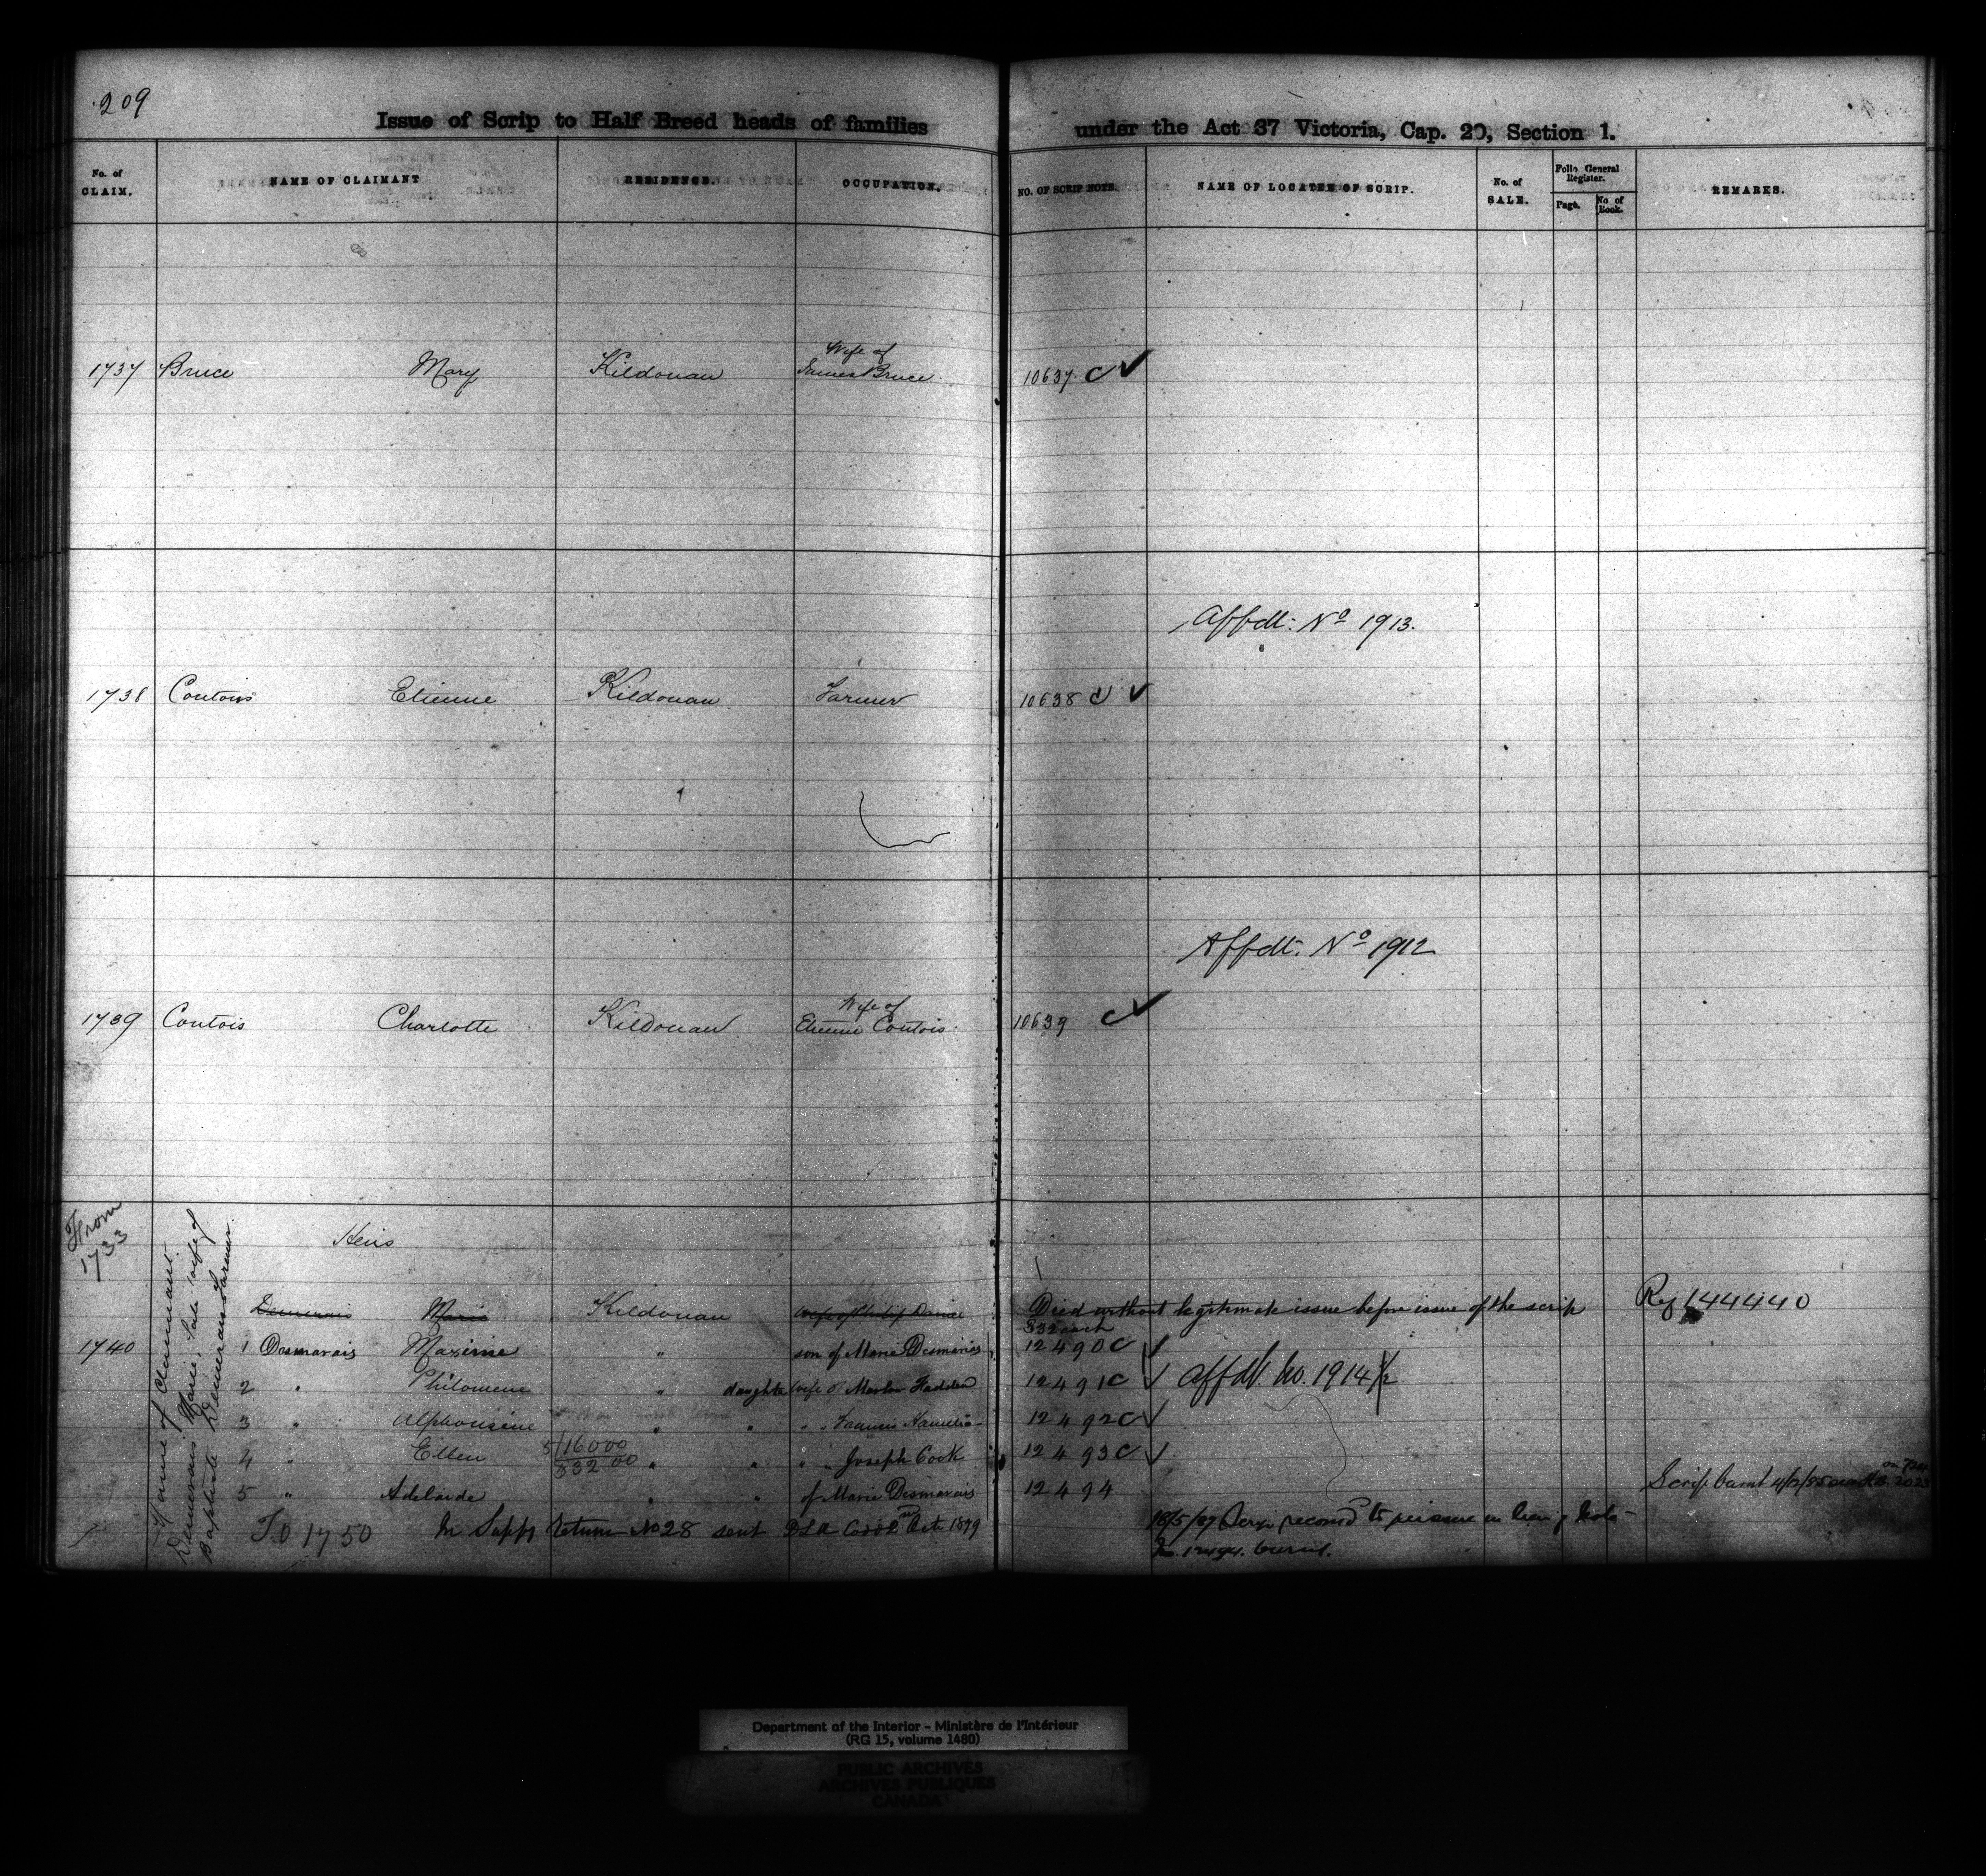 209
Issue of Scrip to Half Breed heads of families under the Act 37 Victoria, Cap. 20, Section 1.
No. of CLAIM. NAME OF CLAIMANT RESIDENCE. OCCUPATION. NO. OF SCRIP NOTE. NAME OF LOCATEE OF SCRIP. No. of SALE. Folio General Register. Page. No of Book. REMARKS.
Wife of
1737 Bruce Mary Kildonan James Bruce 10637 C ✓
Affdt: No 1913.
1738 Contois Etienne Kildonan Farmer 10638 C ✓
Affdt. No 1912
Wife of
1739 Contois Charlotte Kildonan Etienne Contois 10639 C ✓
From 1733
Name of Claimant.
Demerais Marie, late wife of
Baptiste Demerais Farmer.
Heirs
Demerais Marie Kildonan wife of Philip Daniel Died without legitimate issue before issue of the scrip Ref 144440
$32 each
1740 1 Desmarais Maxime " son of Marie Desmarais 12490 C ✓
2 " Philomene " daughter wife of Fadden 12491 C ✓ Affdt. No. 1914 1/2
3 " Alphonsine " " " " Francis 12492 C ✓
4 " Ellen 5/16000 $32 00 " " " " Joseph Cook 12493 C ✓
5 " Adelaide " " of Marie Desmarais 12494 Scrip
T.O 1750 In Supp Return No 28 sent D L A Octr 1899 18/5/87
Department of the Interior - Ministère de l'Intérieur
(RG 15, volume 1480)
PUBLIC ARCHIVES
ARCHIVES PUBLIQUES
CANADA